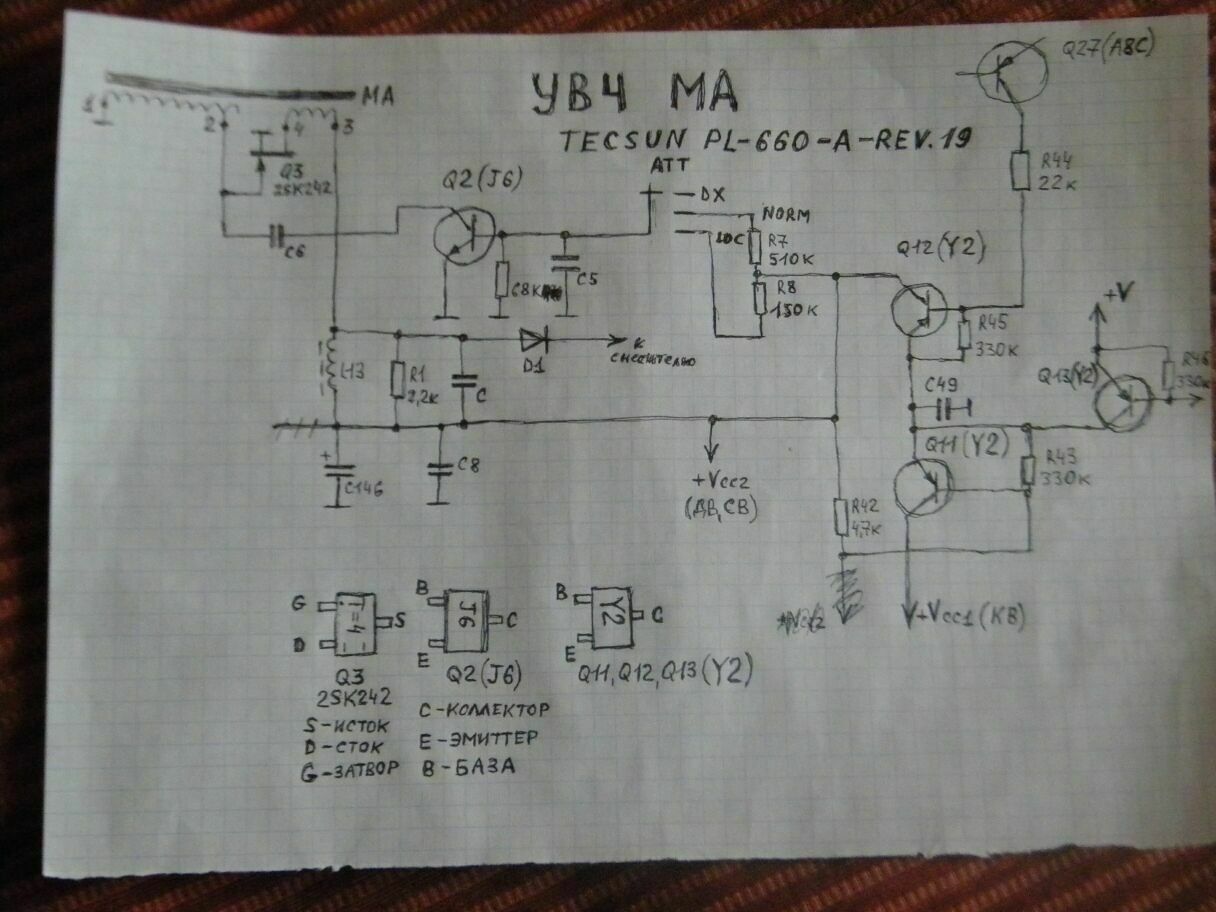 УВЧ МА
TECSUN PL-660-A-REV.19
МА
1
2
4
3
Q3
2SK242
C6
Q2(J6)
ATT
DX
NORM
LOC
R7
510K
R8
150K
68K
C5
Q27(A8C)
R44
22K
Q12(Y2)
R45
330K
+V
R46
330K
Q13(Y2)
C49
Q11(Y2)
R43
330K
R42
4,7K
L13
R1
2,2K
C
D1
К
смесителю
+
C146
C8
+Vcc2
(ДВ,СВ)
+Vcc1(КВ)
G
D
S
Q3
2SK242
S-ИСТОК
D-СТОК
G-ЗАТВОР
B
E
J6
C
Q2(J6)
C-КОЛЛЕКТОР
E-ЭМИТТЕР
B-БАЗА
B
E
Y2
C
Q11,Q12,Q13(Y2)